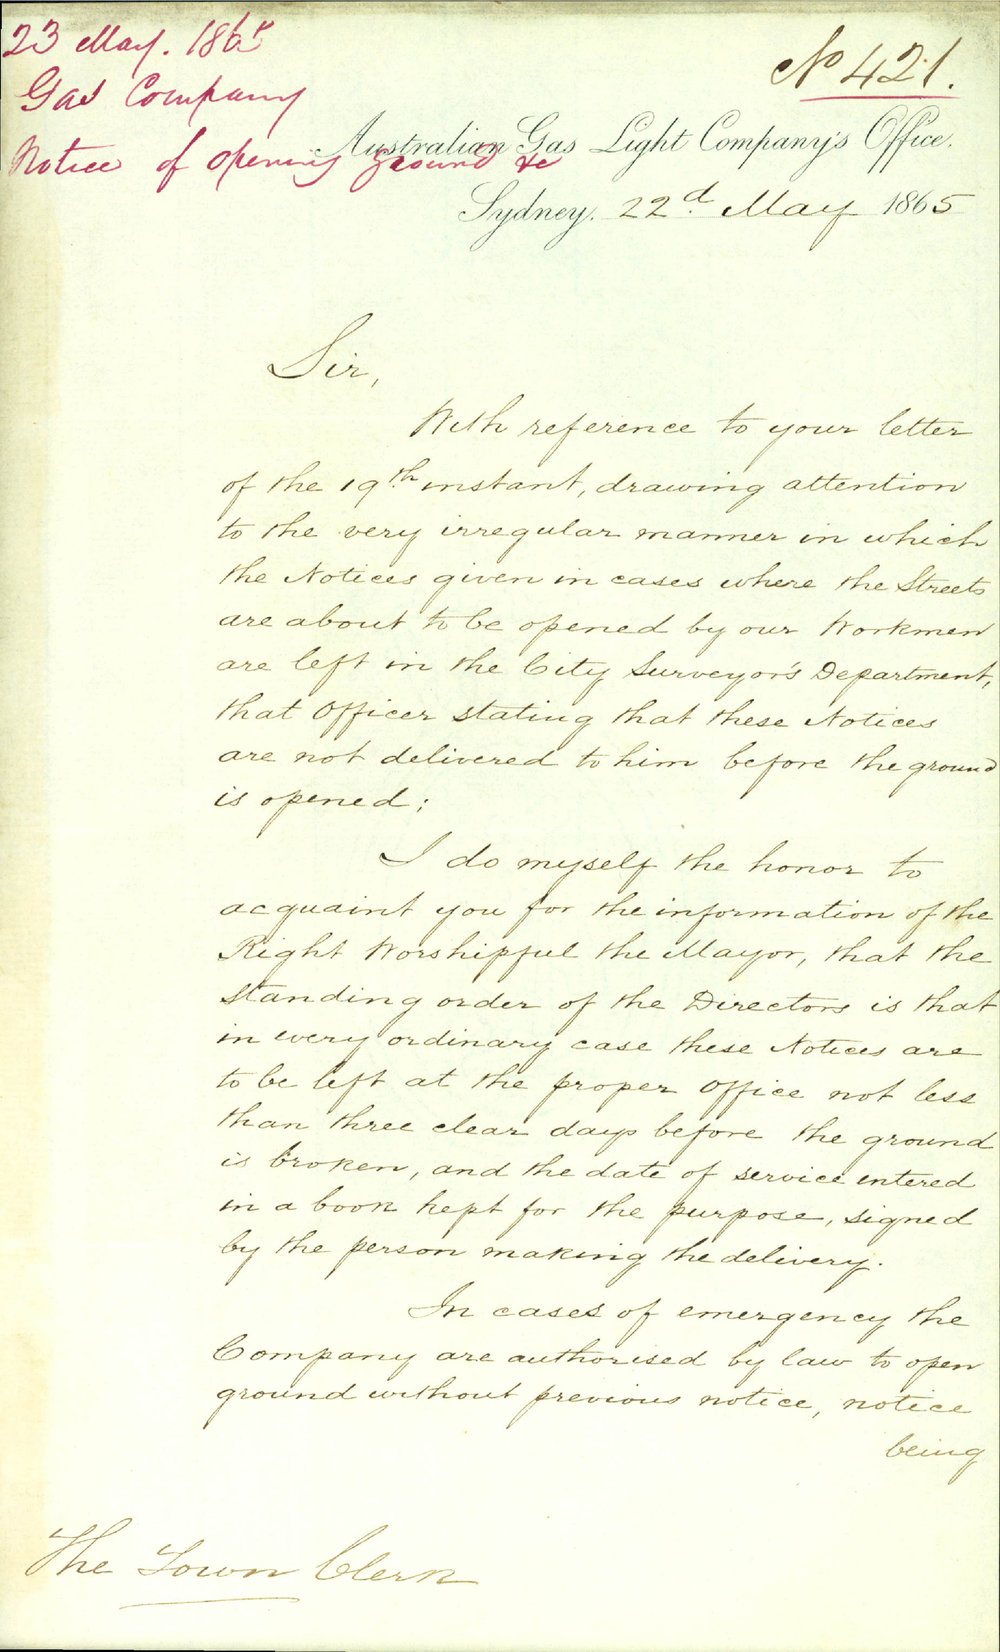 23 May. 1865
Gas Company
Notice of opening ground &c
No 421.
Australian Gas Light Company's Office.
Sydney. 22d. May 1865
Sir,
With reference to your letter
of the 19th instant, drawing attention
to the very irregular manner in which
the Notices given in cases where the Streets
are about to be opened by our Workmen
are left in the City Surveyor's Department,
that Officer stating that these Notices
are not delivered to him before the ground
is opened;
I do myself the honor to
acquaint you for the information of the
Right Worshipful the Mayor, that the
standing order of the Directors is that
in every ordinary case these Notices are
to be left at the proper Office not less
than three clear days before the ground
is broken, and the date of service entered
in a book kept for the purpose, signed
by the person making the delivery.
In cases of emergency the
Company are authorised by law to open
ground without previous notice, notice
being
The Town Clerk